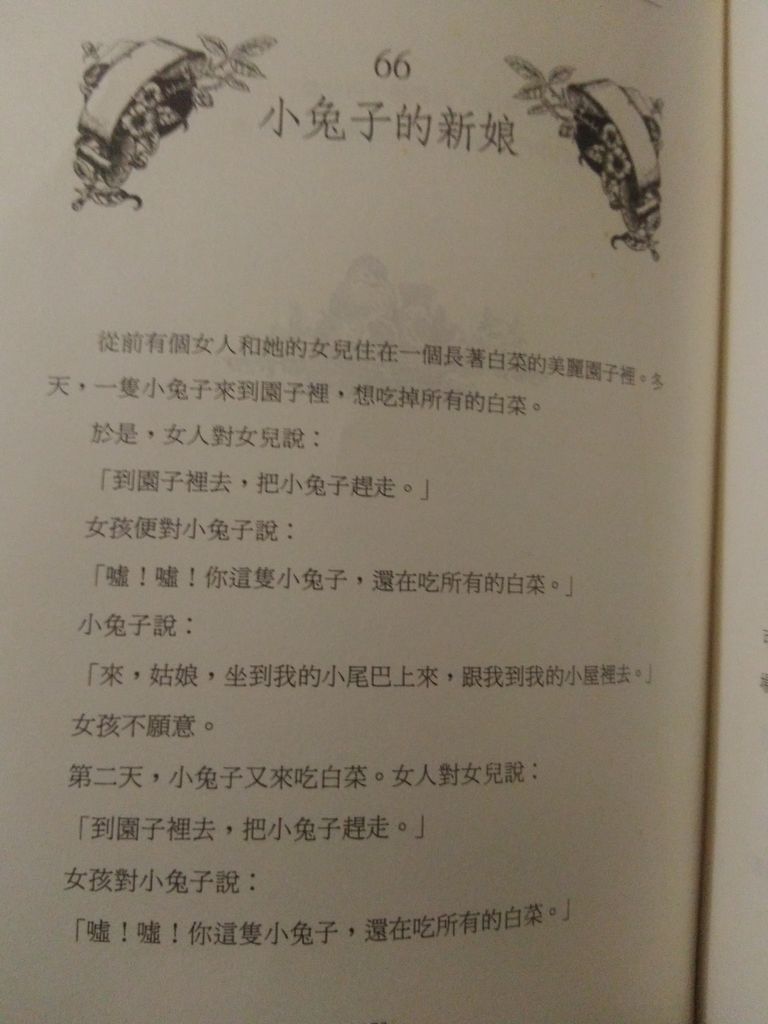 66
小兔子的新娘
從前有個女人和她的女兒住在一個長著白菜的美麗園子裡。冬
天，一隻小兔子來到園子裡，想吃掉所有的白菜。
於是，女人對女兒說：
「到園子裡去，把小兔子趕走。」
女孩便對小兔子說：
「噓！噓！你這隻小兔子，還在吃所有的白菜。」
小兔子說：
「來，姑娘，坐到我的小尾巴上來，跟我到我的小屋裡去。」
女孩不願意。
第二天，小兔子又來吃白菜。女人對女兒說：
「到園子裡去，把小兔子趕走。」
女孩對小兔子說：
「噓！噓！你這隻小兔子，還在吃所有的白菜。」